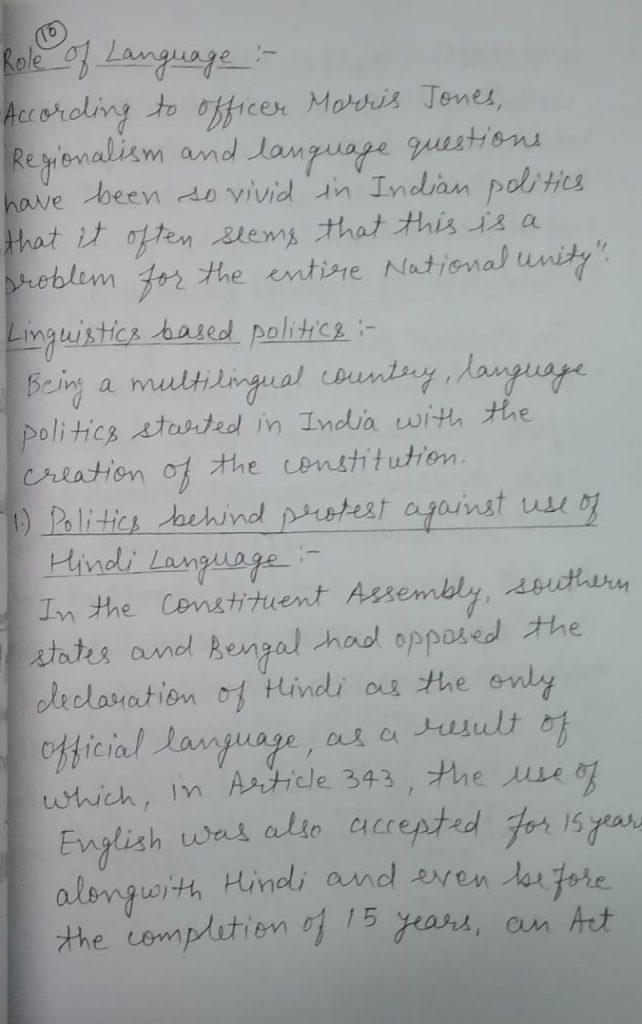 10
Role of Language :-
According to officer Morris Jones,
"Regionalism and language questions
have been so vivid in Indian politics
that it often seems that this is a
problem for the entire National unity".
Linguistics based politics :-
Being a multilingual country, language
politics started in India with the
creation of the constitution.
1.) Politics behind protest against use of
Hindi Language :-
In the Constituent Assembly, southern
states and Bengal had opposed the
declaration of Hindi as the only
official language, as a result of
which, in Article 343, the use of
English was also accepted for 15 years
alongwith Hindi and even before
the completion of 15 years, an Act